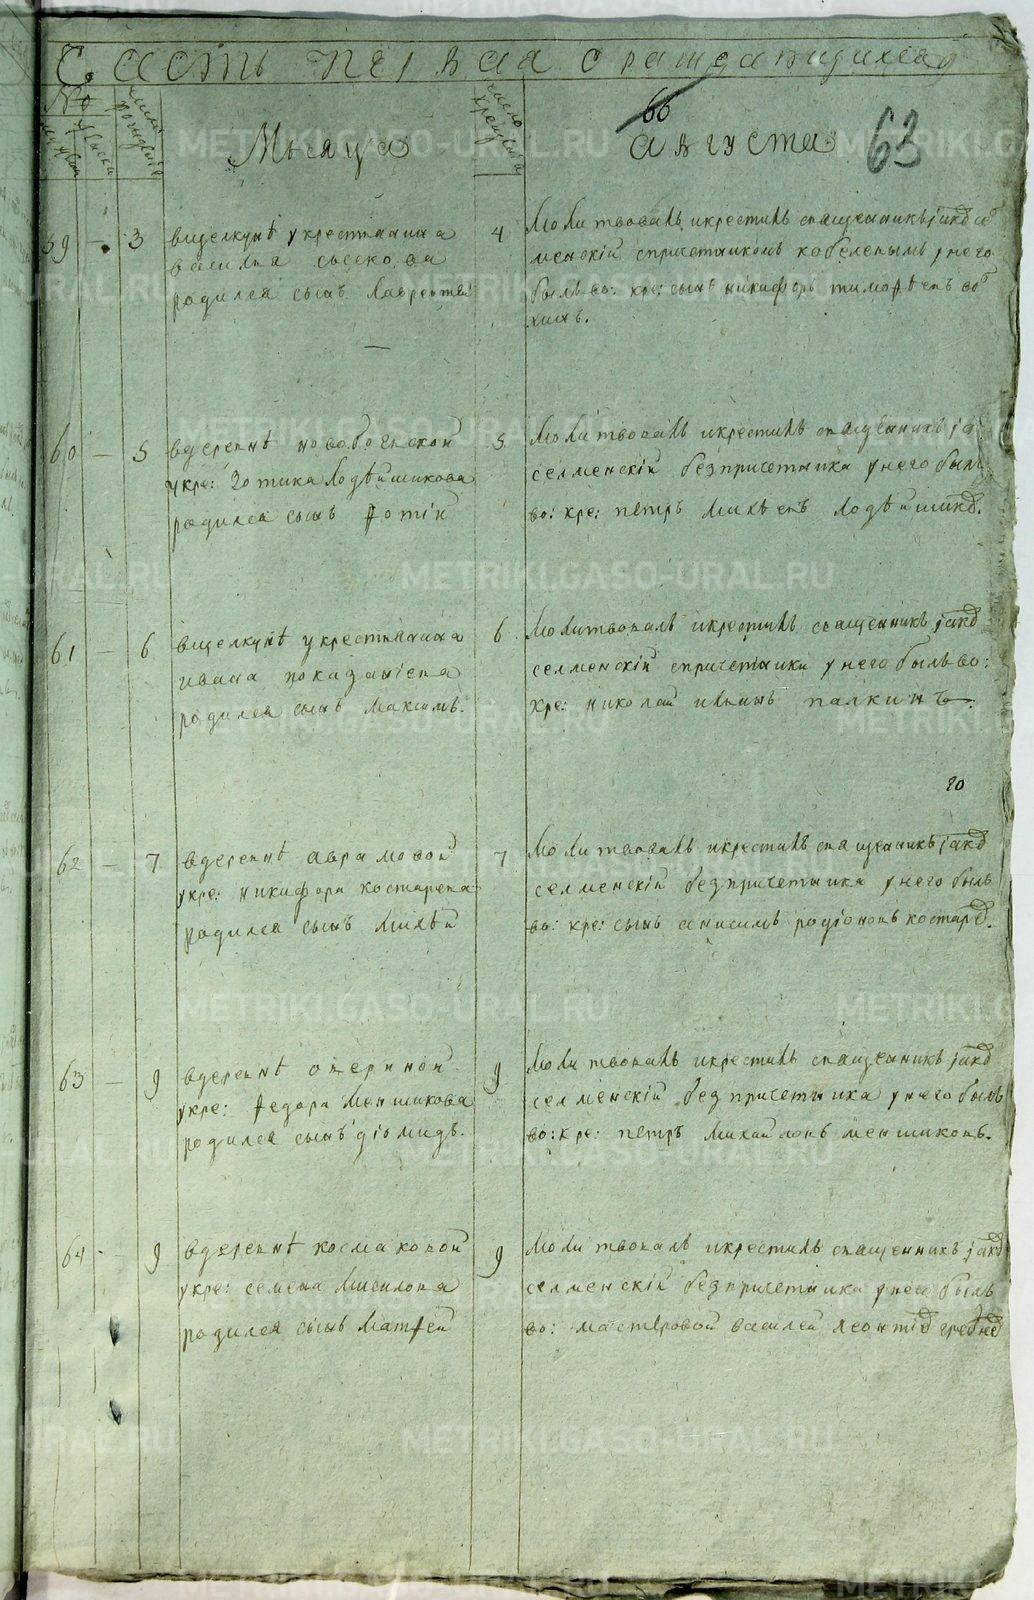 Часть первая о раждающихся
№
мужеска
женска
число рождения
Месяца
число крещения
66
августа
63
59 — 3
вщелкунѣ укрестьянина
василья
родился сынъ Лаврентей
4
Молитвовалъ икрестилъ священникъ
спричетникомъ кобелевымъ унего
былъ во: кре: сынъ никифоръ тимофѣевъ
60 — 5
вдеревнѣ новобоевской
укре: Зотика Лодѣйщикова
родился сынъ Фотiй
5
Молитвовалъ икрестилъ священникъ
селменскiй безпричетника унего былъ
во: кре: петръ Михѣевъ лодѣйщико
61 — 6
вщелкунѣ укрестьянина
ивана показанiева
родился сынъ Максимъ.
6
Молитвовалъ икрестилъ священникъ iако
селменскiй спричетники унего былъ во:
кре: николай ильинъ палкинъ
20
62 — 7
вдеревнѣ аврамовой
укре: никифора костарева
родился сынъ Михѣй
7
Молитвовалъ икрестилъ священникъ iако
селменскiй безпричетника унего былъ
во: кре: сынъ анисимъ родiоновъ костаре.
63 — 9
вдеревнѣ авериной
укре: Федора Меншикова
родился сынъ дiомидъ.
9
Молитвовалъ икрестилъ священникъ iако
селменскiй безпричетника унего былъ
во: кре: петръ Михайловъ меншиковъ.
64 — 9
вдеревнѣ космаковой
укре: семена Мисилова
родился сынъ Матфей
9
Молитвовалъ икрестилъ священникъ iако
селменскiй безпричетника унего былъ
во: мастеровой василей леонтiе